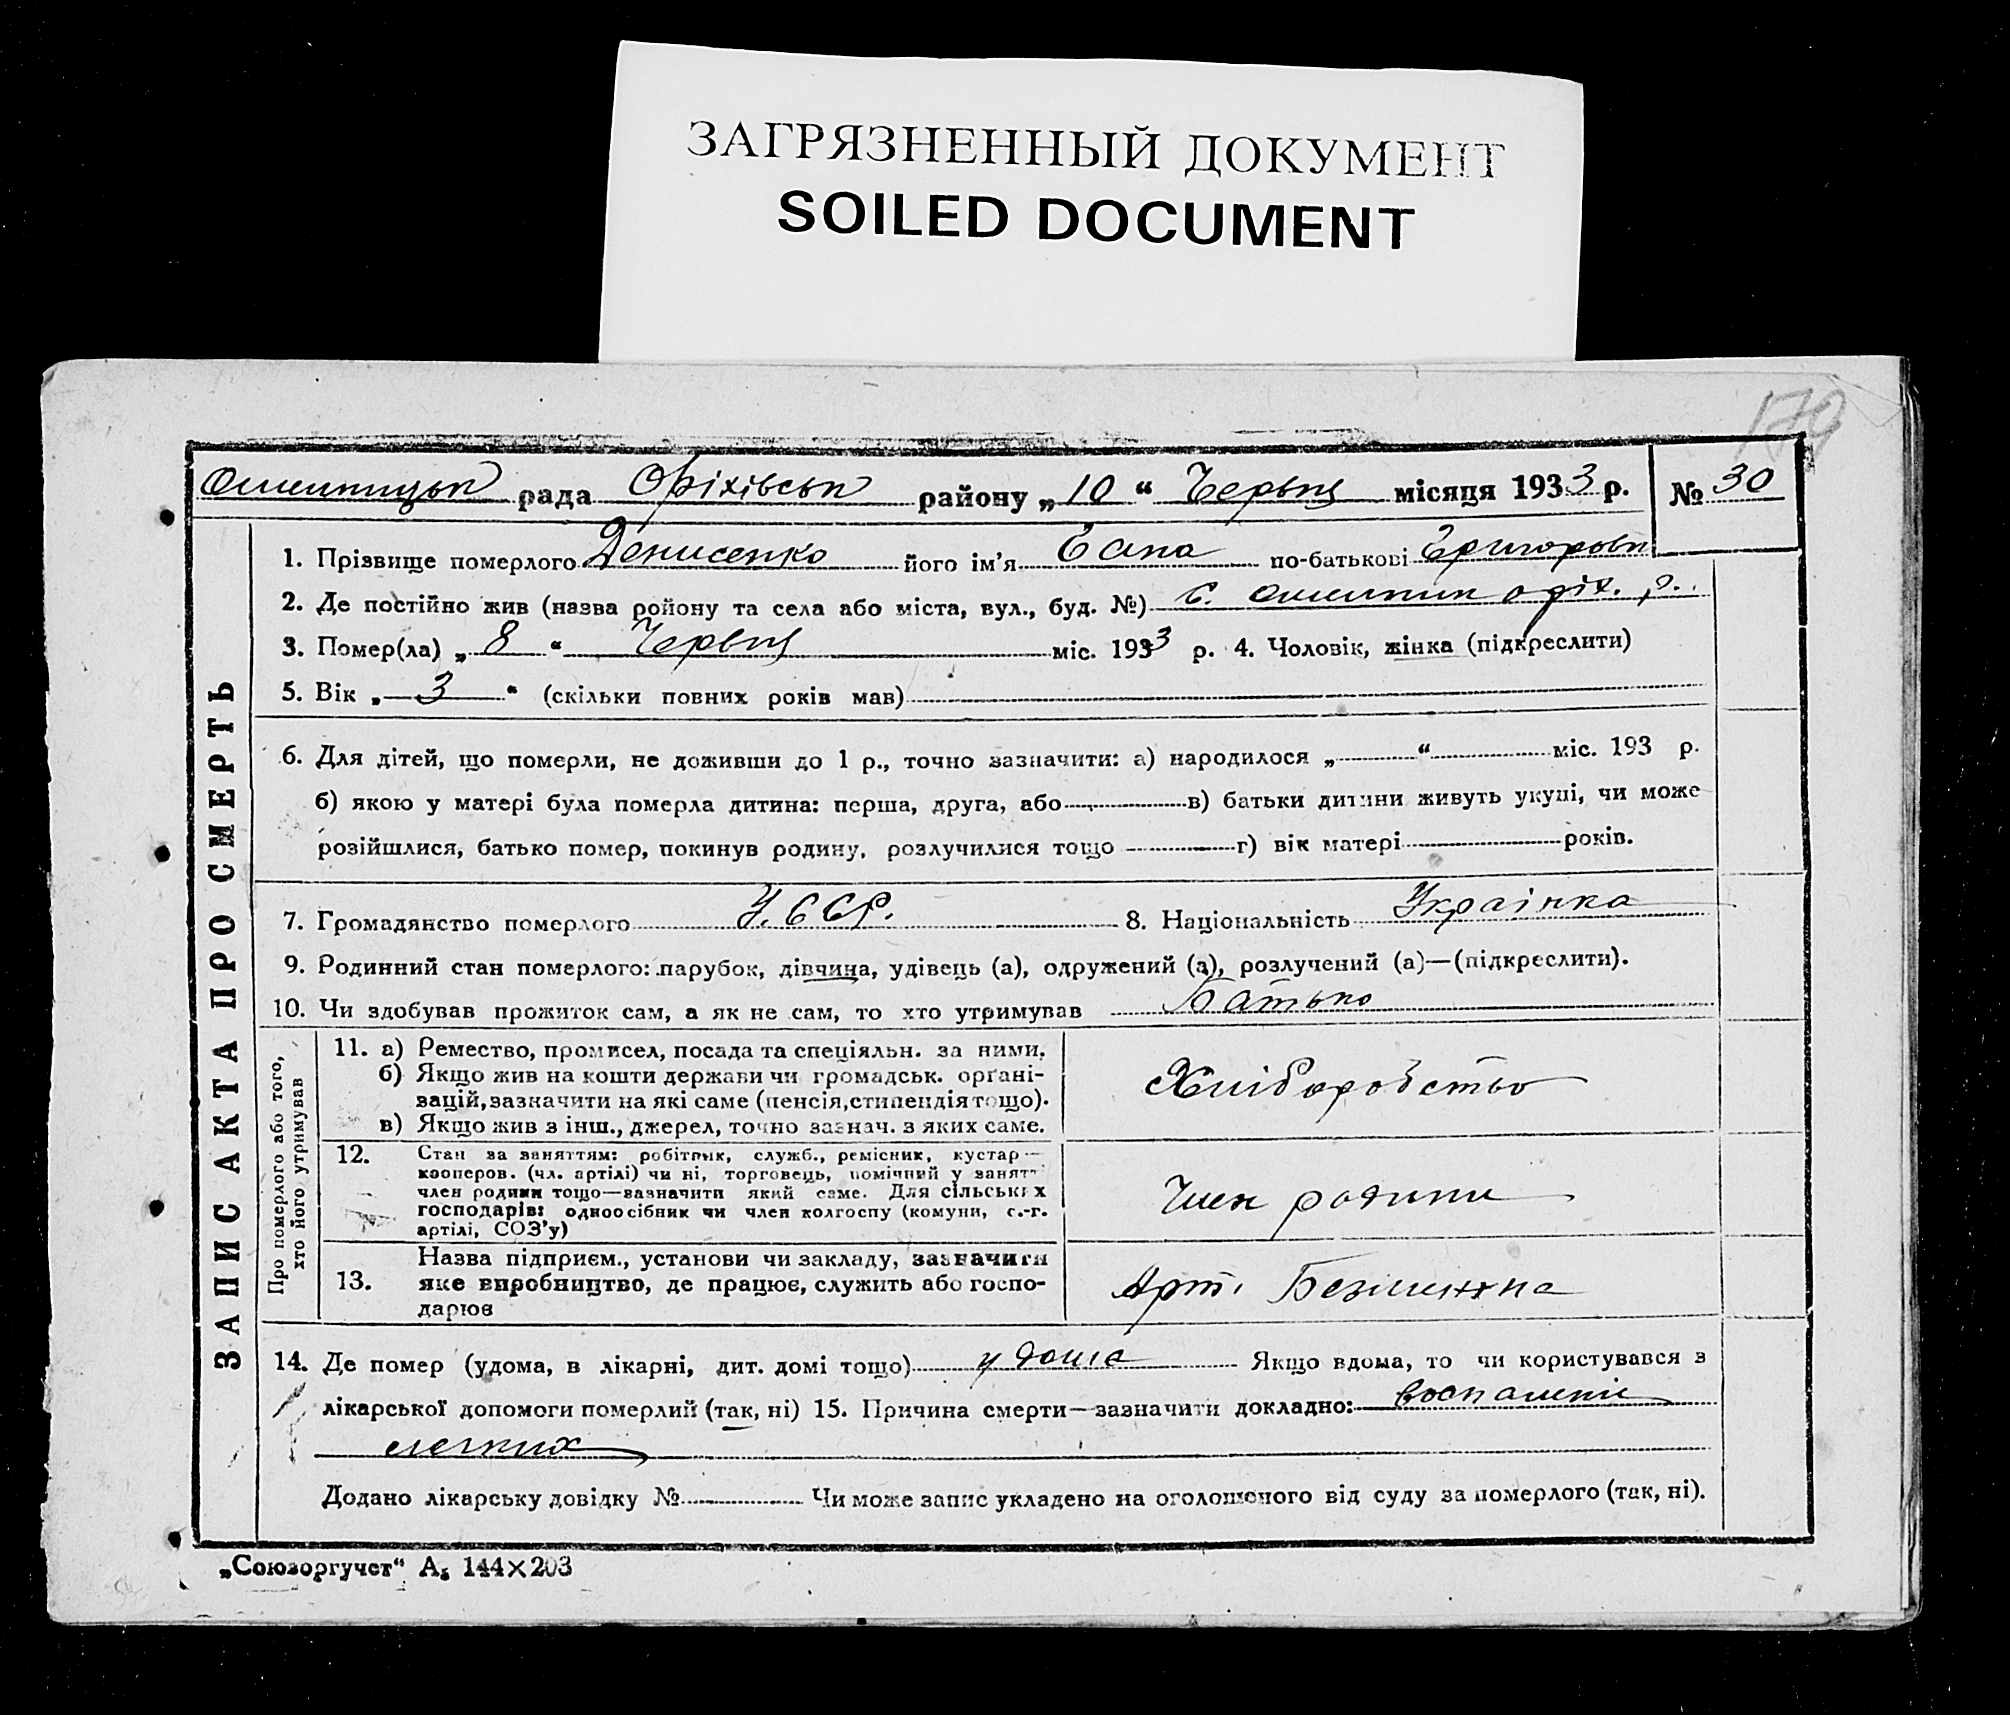 ЗАГРЯЗНЕННЫЙ ДОКУМЕНТ
SOILED DOCUMENT
179
рада Оріхівськ району „10“ Червця місяця 1933 р. № 30
ЗАПИС АКТА ПРО СМЕРТЬ
1. Прізвище померлого Денисенко його ім’я по-батькові Григоровн
2. Де постійно жив (назва ройону та села або міста, вул., буд. №) с. оріх. р.
3. Помер(ла) „8“ Червця міс. 1933 р. 4. Чоловік, жінка (підкреслити)
5. Вік „3“ (скільки повних років мав)
6. Для дітей, що померли, не доживши до 1 р., точно зазначити: а) народилося „ “ міс. 193 р.
б) якою у матері була померла дитина: перша, друга, або в) батьки дитини живуть укупі, чи може
розійшлися, батько помер, покинув родину, розлучилися тощо г) вік матері років.
7. Громадянство померлого У.ССР. 8. Національність Українка
9. Родинний стан померлого: парубок, дівчина, удівець (а), одружений (а), розлучений (а)—(підкреслити).
10. Чи здобував прожиток сам, а як не сам, то хто утримував Батько
Про померлого або того,
хто його утримував
11. а) Ремество, промисел, посада та спеціяльн. за ними.
б) Якщо жив на кошти держави чи громадськ. орґані-
зацій, зазначити на які саме (пенсія, стипендія тощо).
в) Якщо жив з інш., джерел, точно зазнач. з яких саме.
Хліборобство
12. Стан за заняттям: робітник, служб., ремісник, кустар—
кооперов. (чл. артілі) чи ні, торговець, помічний у занятт
член родини тощо—зазначити який саме. Для сільських
господарів: одноосібник чи член колгоспу (комуни, с.-г.
артілі, СОЗ’у)
Член родини
13. Назва підприєм., установи чи закладу, зазначити
яке виробництво, де працює, служить або госпо-
дарює
Арт.
14. Де помер (удома, в лікарні, дит. домі тощо) у дома Якщо вдома, то чи користувався з
лікарської допомоги померлий (так, ні) 15. Причина смерти—зазначити докладно: воспаленіє
легких
Додано лікарську довідку № Чи може запис укладено на оголошеного від суду за померлого (так, ні).
„Союзоргучет“ А₅ 144×203